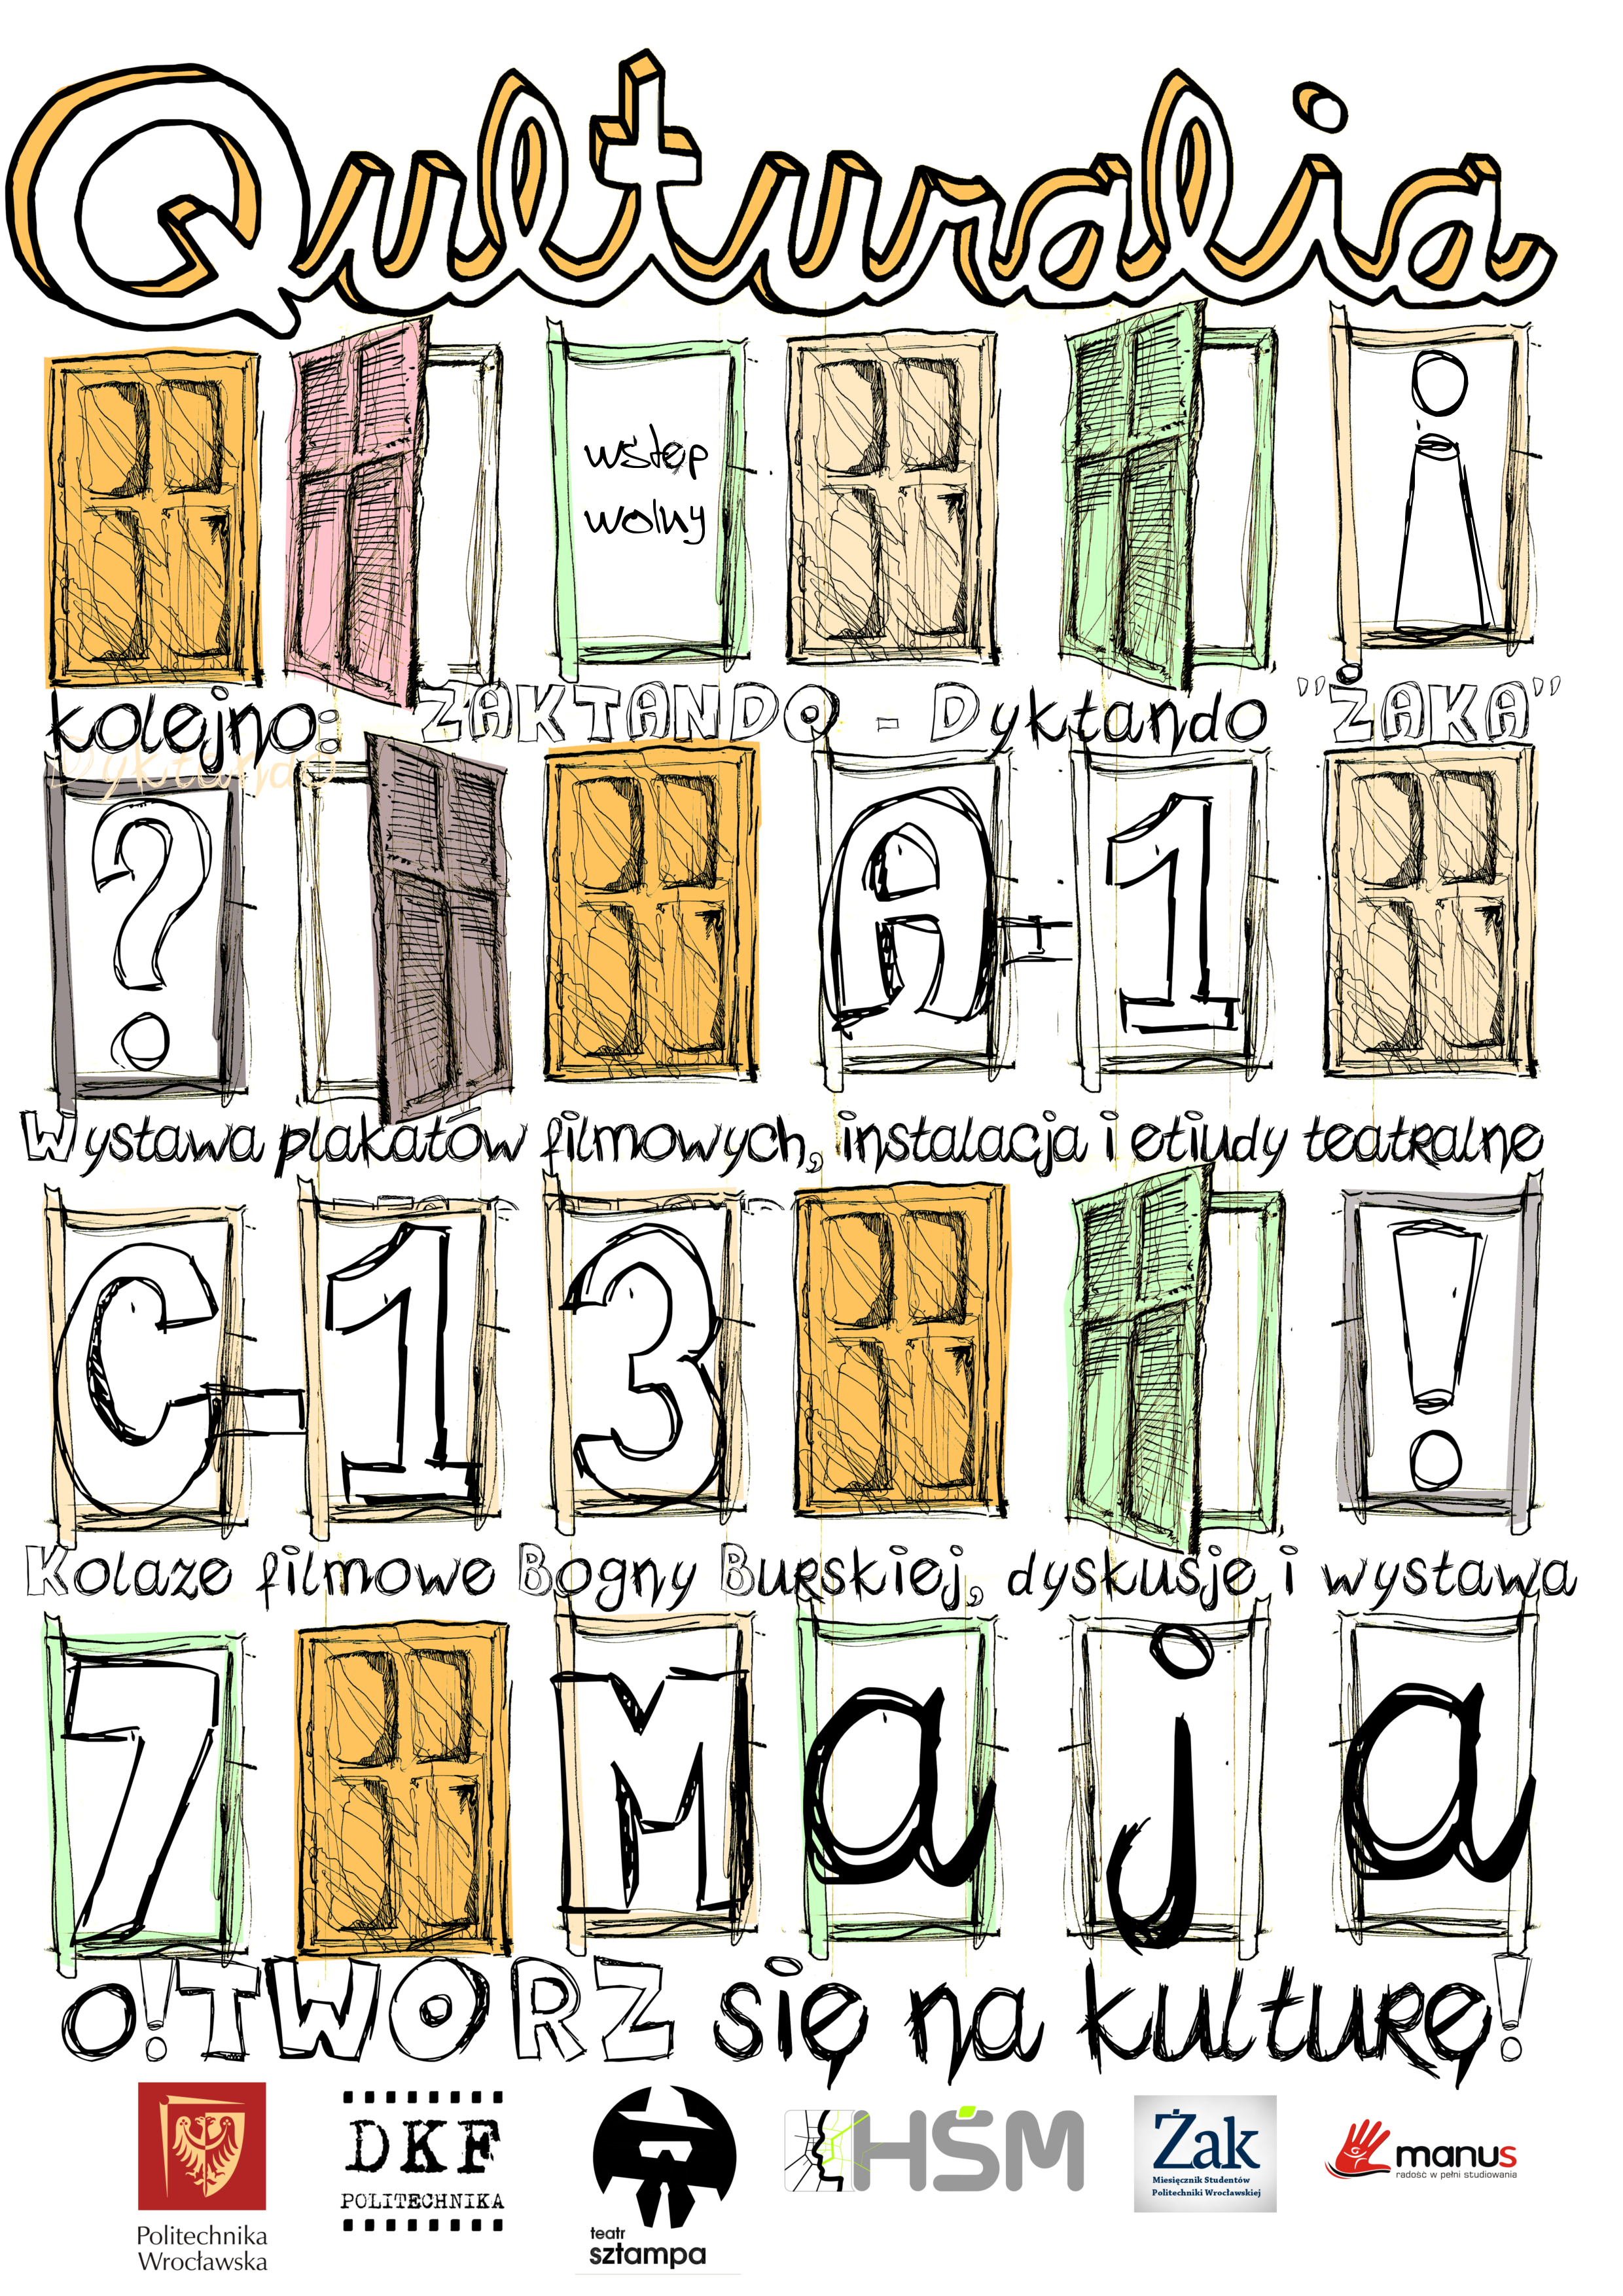 Qulturalia
wstęp
wolny
i
kolejno: ŻAKTANDO - Dyktando "ŻAKA"
Dyktando
? A-1
Wystawa plakatów filmowych, instalacja i etiudy teatralne
C-13 !
Kolaże filmowe Bogny Burskiej, dyskusje i wystawa
7 Maja
O!TWORZ się na kulturę!
DKF
POLITECHNIKA
HŚM
Żak
Miesięcznik Studentów
Politechniki Wrocławskiej
manus
radość w pełni studiowania
Politechnika
Wrocławska
teatr
sztampa